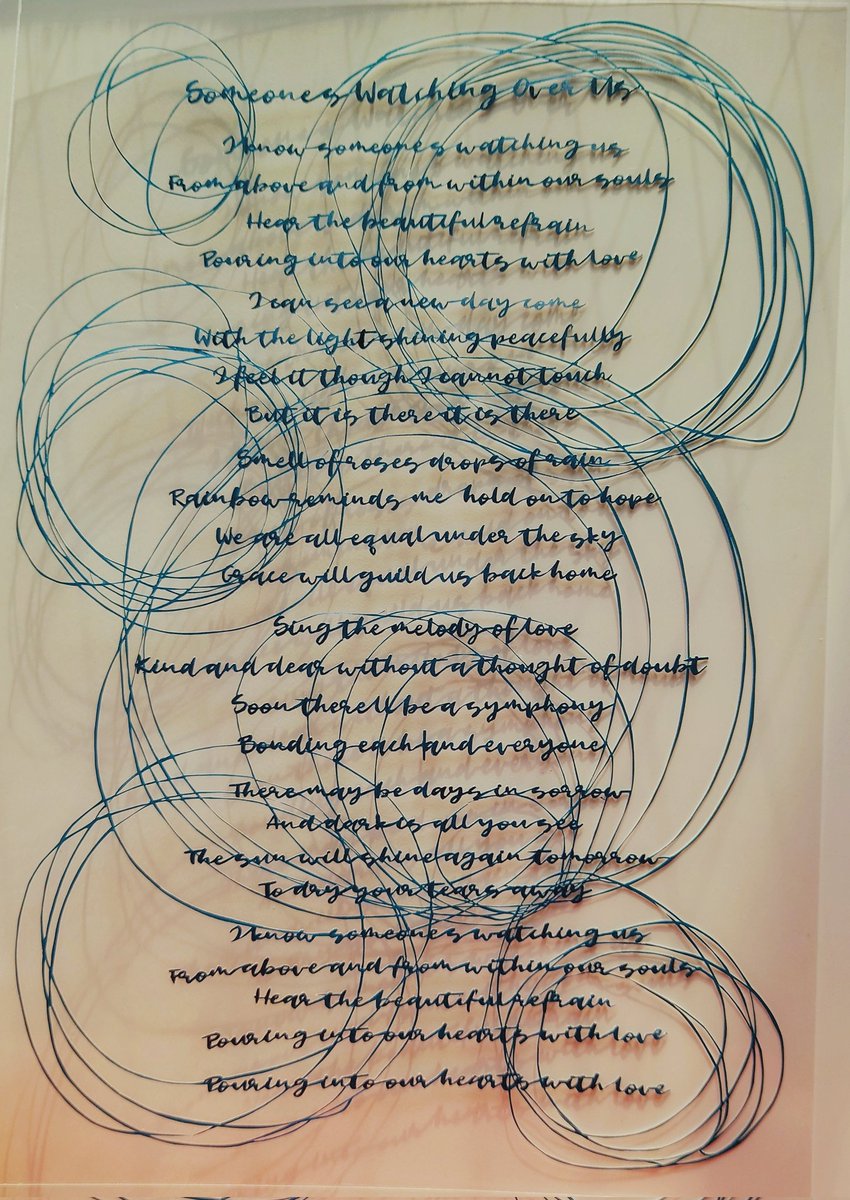 Someones Watching Over Us
I know someones watching us
From above and from within our souls
Hear the beautiful refrain
Pouring into our hearts with love
I can see a new day come
With the light shining peacefully
I feel it though I cannot touch
But it is there it is there
Smell of roses drops of rain
Rainbow reminds me hold on to hope
We are all equal under the sky
Grace will guild us back home
Sing the melody of love
Kind and dear without a thought of doubt
Soon therell be a symphony
Bonding each and everyone
There may be days in sorrow
And dark is all you see
The sun will shine again tomorrow
To dry your tears away
I know someones watching us
From above and from within our souls
Hear the beautiful refrain
Pouring into our hearts with love
Pouring into our hearts with love